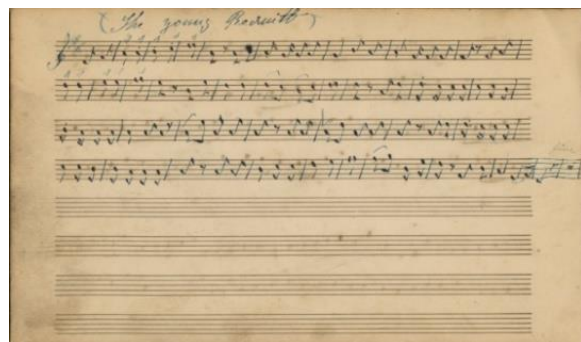 (The young Recruit)